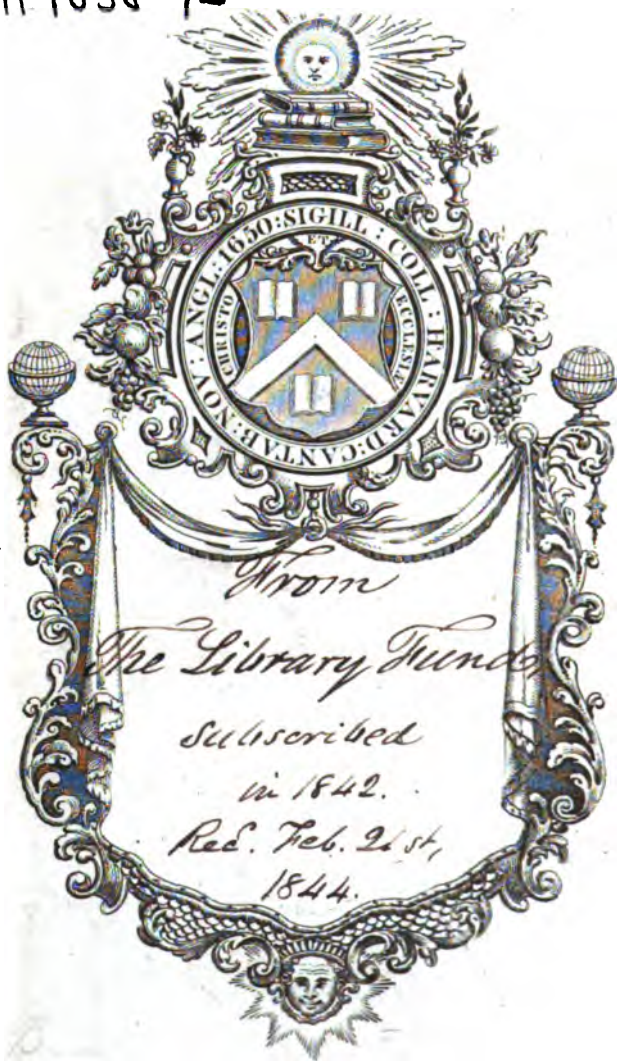 SIGILL : COLL : HARVARD : CANTAB : NOV : ANGL : 1650 :
CHRISTO ET ECCLESIÆ
From
The Library Fund
subscribed
in 1842.
Rec. Feb. 21st,
1844.